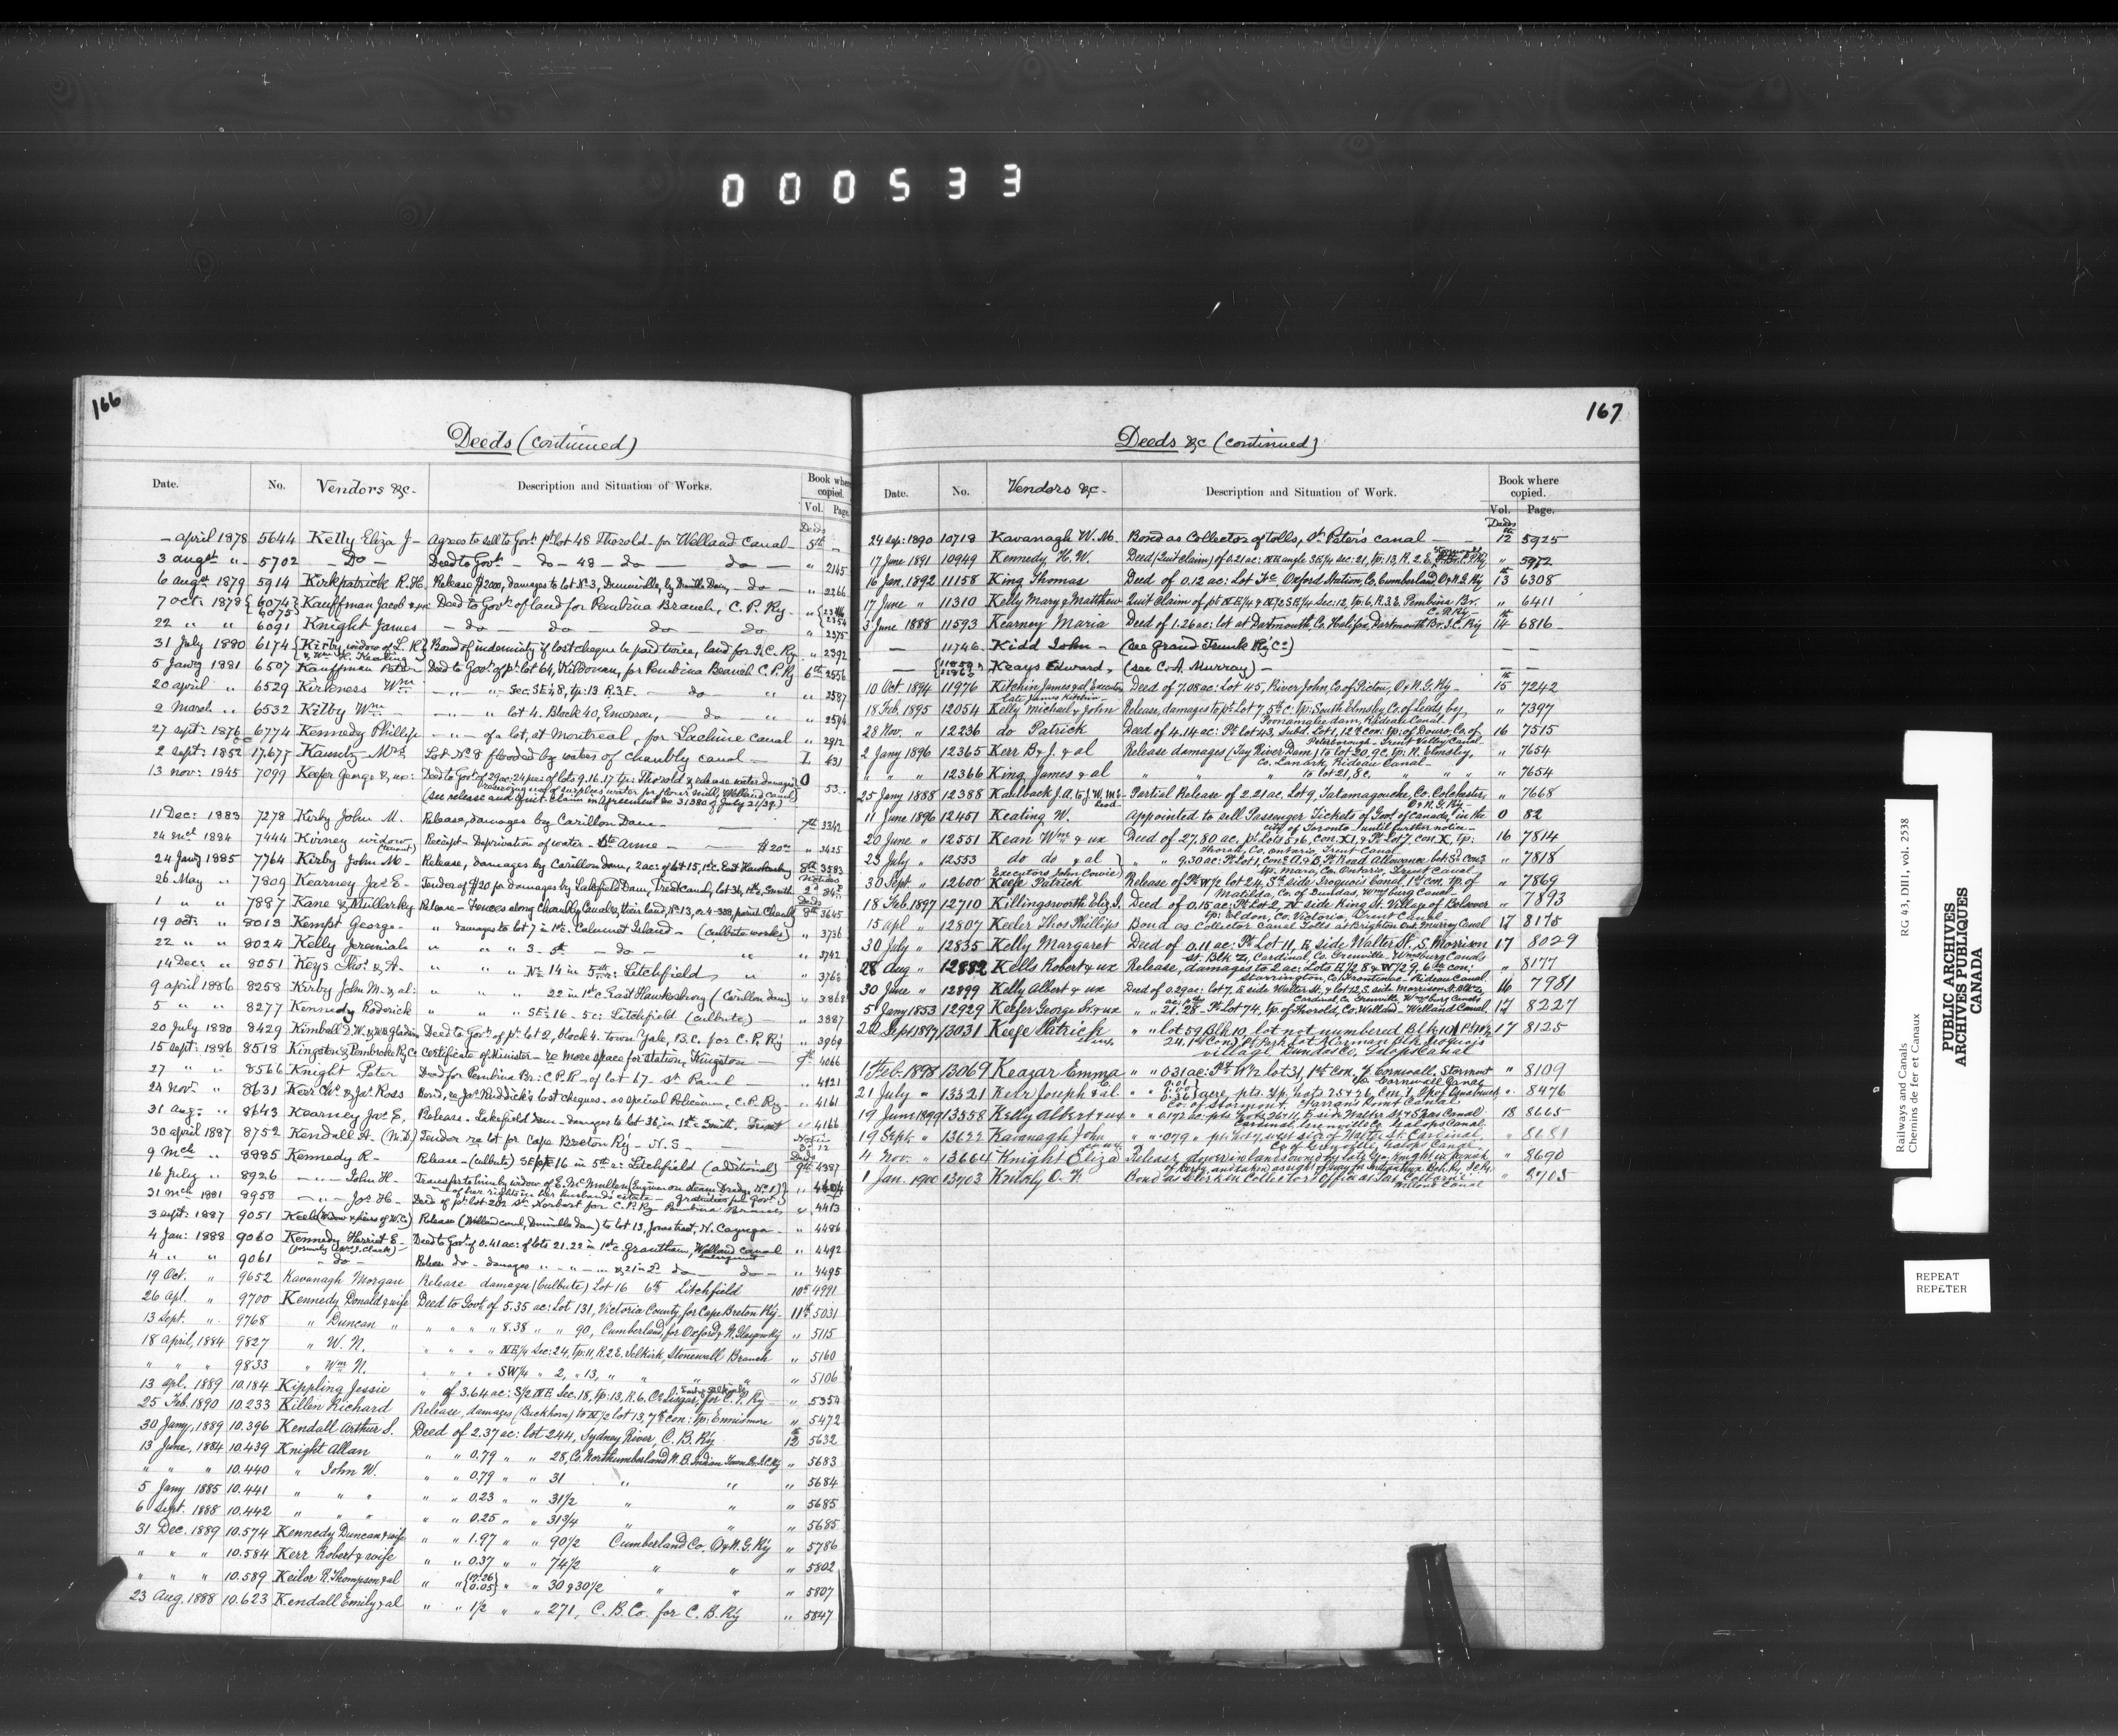 000533
166
Deeds (continued)
Date. No. Vendors &c- Description and Situation of Works. Book where copied. Vol. Page.
Deeds
— april 1878 5644 Kelly Eliza J— Agrees to sell to Govt. pt. lot 48 Thorold - for Welland Canal — 5th —
3 augst " - 5702 — Do — Deed to Govt. — do — 48 — do — do — " 2145
6 augst 1879 5914 Kirkpatrick R. H. Release, $2000, damages to lot No. 3, Dunnville, by Dunnville Dam, — do — " 2266
7 oct: 1878 6074 6075 Kauffman Jacob & ux Deed to Govt. of land for Pembina Branch, C. P. Ry - "
22 " " 6091 Knight James — do — do — do — do " 2375
31 July 1880 6174 Kirby, widow of L. R. & Wm. H. Keating Bond of indemnity if lost cheque be paid twice, land for I. C. Ry " 2392
5 Jany 1881 6507 Kauffman Peter Deed to Govt. of pt. lot 64, Kildonan, for Pembina Branch C. P. Ry 6th 2556
20 april " 6529 Kirkness Wm — " — " Sec. 3E48, tp: 13 R. 3 E. — do — " " 2587
2 March " 6532 Kilby Wm — " — " lot 4. Block 40, Emerson, — do " " 2594
27 sept: 1876 6774 Kennedy Phillip — " — of a lot, at Montreal, for Lachine Canal " 2912
2 sept: 1852 17.677 Lot No. 8 flooded by waters of Chambly canal — L. 631
13 nov: 1845 7099 Keefer George & ux: Deed to Govt. of 29 ac: 24 per: of lots 9. 16. 17 tp: Thorold & release water damages O 53..
reserving use of surplus water for flour mill, Welland Canal
(see release and Quit-Claim in Agreement No 31380 of July 21/39.)
11 Dec: 1883 7278 Kirby John M. Release, damages by Carillon Dam — 7th 3342
24 Mch 1884 7444 Kirney widow (tenant) Receipt - Deprivation of water - Ste Anne — $20 " 3425
24 Jany 1885 7764 Kirby John M— Release, damages by Carillon Dam, 2 ac: of lot 15, 1st c. East Hawkesbury 8th 3583
26 May " 7809 Kearney Jas E— Tender of $20 for damages by Lakefield Dam, Trent Canal, lot 36, 1st c, Smith Notices 2d 84
1 " " 7887 Kane & Mullarky Release - Fences along Chambly Canal & their land, Deeds 8th 3645
19 oct: " 8013 Kempt George — " damages to lot 7 in 1st c. Calumet Island — (culbute works) " 3736
22 " " 8024 Kelly Jeremiah " " " 3 - 5th — do — " " 3742
14 Dec: " 8051 Keys Thos. & A— " " " No. 14 in 5th c: Litchfield " " 3762
9 april 1886 8258 Kirby John M. & al: " " " 22 in 1st c East Hawkesbury (Carillon dam) " 3868
5 " " 8277 Kennedy Roderick " " " SE½ 16 - 5c: Litchfield (culbute) — " 3887
20 July 1880 8429 Kimball D. W. & Deed to Govt. of pt. lot 2, block 4. town Yale, B. C. for C. P. Ry " 3969
15 sept: 1886 8518 Kingston & Pembroke Ry Co Certificate of Minister - re more space for station, Kingston — 9th 4066
27 " " 8566 Knight Peter Deed for Pembina Br: C. P. R - of lot 67 - St Paul — " 4121
24 Nov. " 8631 Keer Chs. & Jas. Ross Bond, re Jas. Ruddick's lost cheques. as special Policeman, C. P. Ry — " 4161
31 Aug: " 8643 Kearney Jas E, Release - Lakefield Dam - damages to lot 36, in 1st c Smith. Trent " 4166
30 april 1887 8752 Kendall A. (M.D.) Tender re lot for Cape Breton Ry — N. S — Notices 2d 12
9 Mch " 8885 Kennedy R— Release - (culbute) 16 in 5th c: Litchfield (additional) Deeds 9th 4387
16 July " 8926 — " — John H— Transfer to him by widow of E. McMullen (Engineer on steam Dredge No. 1) " 4404
of her rights in her husband's estate — gratuities pd Govt.
31 Mch 1881 8958 — " — Jos H— Deed of pt. lot 202 St Norbert for C. P. Ry Pembina Branch " 4413
3 sept: 1887 9051 Keele (widow & heirs of W. C.) Release (Welland canal, Dunnville Dam) to lot 13, Jones tract, N. Cayuga — " 4486
4 Jan: 1888 9060 Kennedy Harriet E— (formerly Clark) Deed to Govt. of 0.41 ac: of lots 21. 22 in 1st c. Grantham, Welland Canal enlargement " 4492
4 " " 9061 — do — Release do — damages " — " — " & 21 in 2d do — do — " 4495
19 Oct. " 9652 Kavanagh Morgan Release damages (Culbute) Lot 16 6th Litchfield 10th 4991
26 apl. " 9700 Kennedy Donald & wife Deed to Govt of 5.35 ac: Lot 131, Victoria County, for Cape Breton Ry. 11th 5031
13 Sept. " 9768 " Duncan " " " " " 8.38 " " 90, Cumberland, for Oxford & N. Glasgow Ry " 5115
18 april, 1884 9827 " W. N. " " " " NE¼ Sec: 24, tp: 11, R. 2 E. Selkirk, Stonewall Branch " 5160
" " " 9833 " Wm N. " " " " SW¼ " 2, " 13, " " " " 5106
13 apl. 1889 10.184 Kippling Jessie " of 3.64 ac: S/2 NE Sec. 18, tp: 13, R. 6, Co. Lisgar, for C. P. Ry " 5354
25 Feb. 1890 10.233 Killen Richard Release, damages (Buckhorn) to N½ lot 13, 7th con: tp: Ennismore " 5472
30 Jany, 1889 10.396 Kendall Arthur S. Deed of 2.37 ac: lot 244, Sydney River, C. B. Ry 12th 5632
13 June, 1884 10.439 Knight Allan " " 0.79 " " 28, Co. Northumberland N. B. Indian Town Br. I. C. Ry " 5683
" " " 10.440 " John W. " " 0.79 " " 31 " " " 5684
5 Jany 1885 10.441 " " " " " 0.23 " " 31½ " " " 5685
6 Sept. 1888 10.442 " " " " " 0.25 " " 31¾ " " " 5685
31 Dec. 1889 10.574 Kennedy Duncan & wife " " 1.97 " " 90½ Cumberland Co. O & N. G. Ry " 5786
" " " 10.584 Kerr Robert & wife " " 0.37 " " 74½ " " " 5802
" " " 10.589 Keilor R. Thompson & al " " 0.05 " " 30 & 30½ " " " 5807
23 Aug. 1888 10.623 Kendall Emily & al " " 1/2 " " 271, C. B. Co. for C. B. Ry " 5847
167
Deeds &c (continued)
Date. No. Vendors &c- Description and Situation of Work. Book where copied. Vol. Page.
Deeds
24 Sep: 1890 10718 Kavanagh W. M. Bond as Collector of tolls, St. Peter's canal — — 12th 5925
17 June 1891 10949 Kennedy H. W. Deed (Quit claim) of 0.21 ac: NE angle SE¼ sec: 21, tp: 13, R. 2. E. " 5972
16 Jan. 1892 11158 King Thomas Deed of 0.12 ac: Lot Oxford Station, Co. Cumberland, O & N. G. Ry 13th 6308
17 June " 11310 Kelly Mary & Matthew Quit Claim of pt NE¼ & N½ SE¼ Sec: 12, tp: 6, R. 3. E. Pembina Br. C. P. Ry — " 6411
3 June 1888 11593 Kearney Maria Deed of 1.26 ac: lot at Dartmouth, Co. Halifax, Dartmouth Br. I. C. Ry 14th 6816
— 11746 Kidd John — (see Grand Trunk Ry Co) — —
— Keays Edward, (see C. A. Murray) — — —
10 Oct 1894 11976 Kitchin James & al Executors late James Kitchin Deed of 7.08 ac: Lot 45, River John, Co. of Pictou, O & N. G. Ry — 15th 7242
18 Feb. 1895 12054 Kelly Michael & John Release, damages to pt. Lot 7, 5th C: tp: South Elmsley Co. of Leeds, by " 7397
Poonamalee dam, Rideau Canal —
28 Nov. " 12236 do Patrick Deed of 4.14 ac: Pt Lot 43, Subd. Lot 1, 12th con: tp: of Douro, Co. of 16 7515
Peterborough — Trent Valley Canal
2 Jany 1896 12365 Kerr B. J. & al Release damages (Tay River Dam) to lot 20, 9 C. tp: N. Elmsley, " 7654
Co. Lanark, Rideau Canal —
" " " 12366 King James & al " " " to lot 21, 8 c. " " " " 7654
25 Jany 1888 12388 Kaulback J. A. to J. W. Partial Release of 2.21 ac. Lot 9, Tatamagouche, Co. Colchester, " 7668
O & N. G. Ry —
11 June 1896 12451 Keating W. Appointed to sell Passenger Tickets of Govt of Canada, in the O 82
city of Toronto — until further notice —
20 June " 12551 Kean Wm & ux Deed of 27.80 ac. pt. Lots 5 & 6, con. XI, & Pt Lot 7 con. X, tp: 16 7814
Thorah, Co. Ontario, Trent Canal
23 July " 12553 do do & al Executors John Cowie " " 9.30 ac: Pt Lot 1, Cons. A. & B, Pt Road Allowance bet: Sd Cons " 7818
tp. Mara, Co. Ontario, Trent Canal
30 Sept. " 12600 Keefe Patrick Release of Pt W½ lot 24, Sth side Iroquois Canal, 1st con. tp. of " 7869
Matilda, Co. of Dundas, Wmsburg Canal —
18 Feb. 1897 12710 Killingsworth Eliz J. Deed of 0.15 ac: Pt Lot 2, N. side King St. Village of Bolsover " 7893
tp: Eldon, Co. Victoria, Trent Canal
15 Apl " 12807 Keeler Thos Phillips Bond as Collector Canal Tolls at Brighton Ont. Murray Canal 17 8175
30 July " 12835 Kelly Margaret Deed of 0.11 ac: Pt Lot 11, E. side Walter St., S. Morrison 17 8029
St. Blk Z, Cardinal, Co. Grenville — Wmsburg Canals
28 Aug " 12882 Kells Robert & ux Release, damages to 2 ac: Lots E½ 8 & W½ 9, 6th con: " 8177
Storrington, Co. Frontenac — Rideau Canal
30 June " 12899 Kelly Albert & ux Deed of 0.29 ac: lot 7, E side Walter St., & lot 12, S. side Morrison St. Blk Z, 16 7981
Cardinal, Co. Grenville, Wmsburg Canals
5 Jany 1853 12929 Keefer George Sr. & ux " " 21.28 — Pt Lot 74, tp. of Thorold, Co. Welland — Welland Canal 17 8227
22 Sept. 1897 13031 Keefe Patrick " " lot 59 Blk 10, lot not numbered Blk 10, Pt W½ 17 8125
24. 1st Con: Pt Park Lot A German Blk, Iroquois
village, Dundas Co, Galops Canal
1 Feb. 1898 13069 Keazar Emma " " 0.31 ac: Pt W½ lot 31, 1st Con, Tp. Cornwall, Stormont " 8109
Co. Cornwall Canal
21 July " 13321 Keir Joseph & al. " " acre, pts. Lots 25 & 26, Con. 1, Tp of Osnabruck " 8476
Co. of Stormont, Farran's Point Canal
19 June 1899 13558 Kelly Albert & ux " " 0.172 ac. pts Lots 26 & 11, E. side Walter St. & S 18 8665
Cardinal, Grenville Co. Galops Canal
19 Sept. " 13622 Kavanagh John " " .079 " pt. Lot 7, west side of Walter St. Cardinal, " 8681
Co. of Grenville, Galops Canal
4 Nov. " 13664 Knight Eliza Release, dower in land owned by late Geo. Knight in parish " 8690
of Derby, and taken as right of way for Indian Town Bch. Ry. I. C. R.
1 Jan. 1900 13703 O. F. Bond as Clerk in Collector's Office at Port Colborne " 8705
Welland Canal
Railways and Canals RG 43, DIII, vol. 2538
Chemins de fer et Canaux
PUBLIC ARCHIVES
ARCHIVES PUBLIQUES
CANADA
REPEAT
REPETER